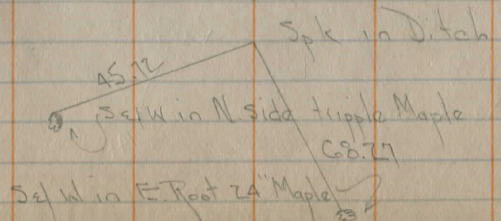 Spk in Ditch
45.72
S&W in N. Side tripple Maple
68.27
S&W in E. Root 24" Maple